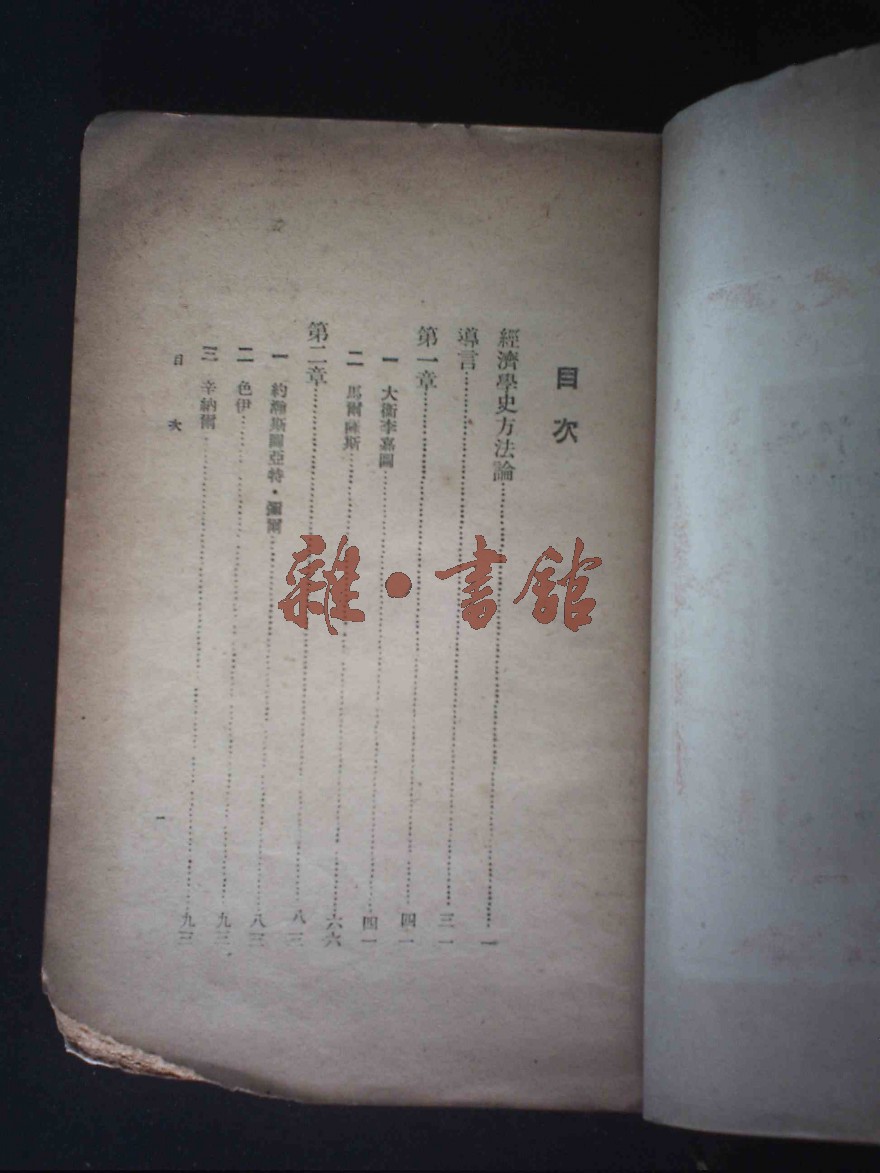 目次
經濟學史方法論……一
導言……三一
第一章……四一
一 大衛李嘉圖……四一
二 馬爾薩斯……六六
第二章……八三
一 約翰斯圖亞特・彌爾……八三
二 色伊……九三
三 辛納爾……九三
目次 一
雜・書館